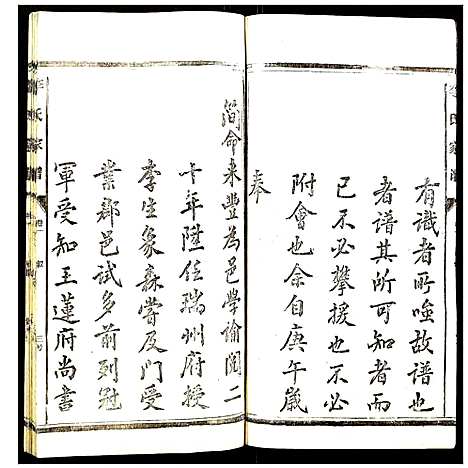 有識者所嗤故譜也
者譜其所可知者而
已不必攀援也不必
附會也余自庚午歲
奉
簡命來豐為邑學諭閱二
十年陞任瑞州府授
李生象森嘗及門受
業郡邑試多前列冠
軍受知王蓮府尚書
李氏家譜